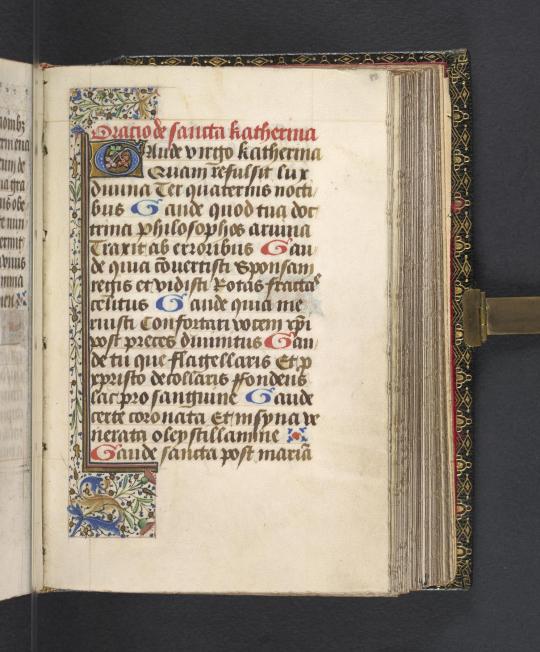 Oratio de sancta katherina
Gaude virgo katherina
Quam refulsit lux
diuina Ter quaternis nocti
bus Gaude quod tua doc
trina philosophos a ruina
Traxit ab erroribus Gau
de quia cōuertisti Sponsam
regis et vidisti Rotas fractas
celitus Gaude quia me
ruisti Confortari vocem xp̄i
post preces diuinitus Gau
de tu que flagellaris Et p
xpristo decollaris ffondens
lac pro sanguine Gaude
certe coronata Et in syna ve
nerata oley stillamine
Gaude sancta post mariā